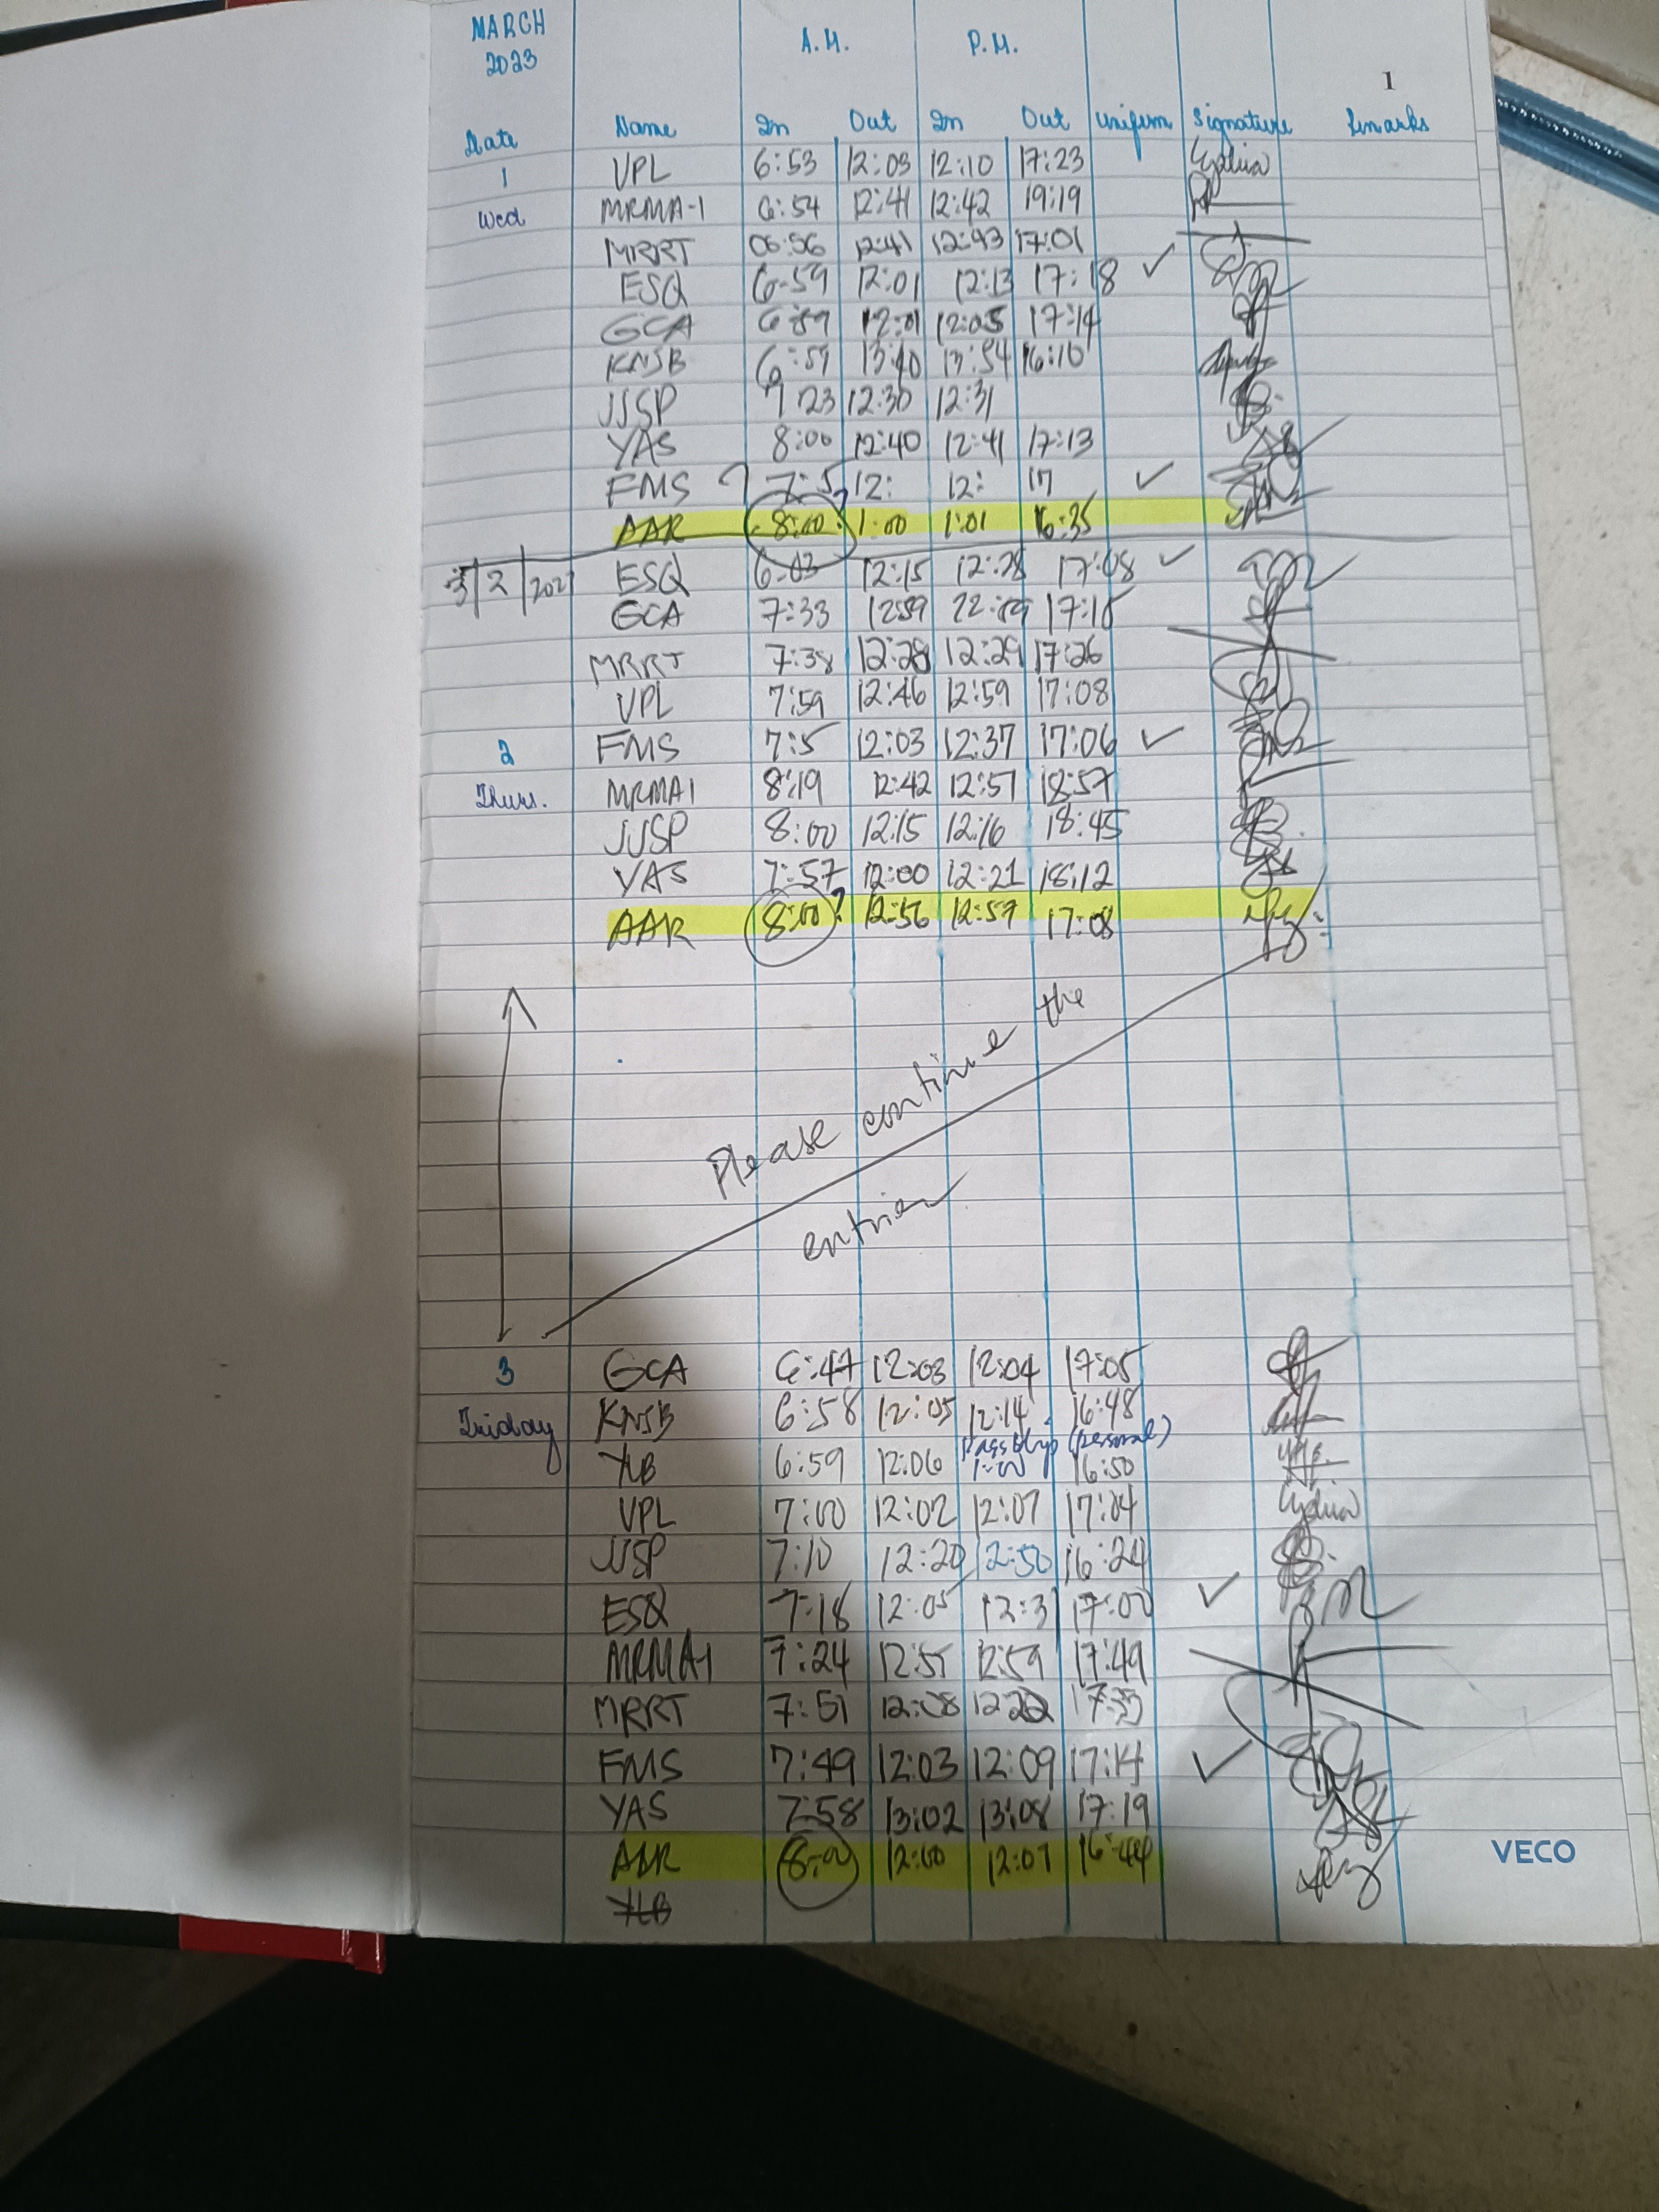 MARCH
2023
A.M. P.M.
1
Date Name In Out In Out Uniform Signature Remarks
1 VPL 6:53 12:03 12:10 17:23 Lydia
Wed MRMA-1 6:54 12:41 12:42 19:19
MRRT 06:56 12:41 12:43 17:01
ESQ 6:59 12:01 12:13 17:18 ✓
GCA 6:59 12:01 12:05 17:14
KNSB 6:59 13:40 13:54 16:10
JJSP 7:23 12:30 12:31
YAS 8:00 12:40 12:41 17:13
FMS ? 7:5 12: 12: 17 ✓
AAR 8:00 ? 1:00 1:01 16:35
3/2/202 ESQ 6:03 12:15 12:28 17:08 ✓
GCA 7:33 1259 17:18
MRRT 7:38 12:28 12:29 17:26
VPL 7:59 12:46 12:59 17:08
2 FMS 7:5 12:03 12:37 17:06 ✓
Thurs. MRMA1 8:19 12:42 12:57 18:57
JJSP 8:00 12:15 12:16 18:45
YAS 7:57 12:00 12:21 18:12
AAR 8:00 ? 12:56 12:57 17:08
Please continue the
entries
3 GCA 6:47 12:03 12:04 17:05
Friday KNSB 6:58 12:05 12:14 16:48
Pass Slip (personal)
YLB 6:59 12:06 1:00 16:50
VPL 7:00 12:02 12:07 17:04 Lydia
JJSP 7:10 12:20 12:50 16:24
ESQ 7:18 12:05 12:31 17:00 ✓
MRMA-1 7:24 12:57 12:59 17:49
MRRT 7:51 12:08 1222 17:33
FMS 7:49 12:03 12:09 17:14 ✓
YAS 7:58 13:02 13:08 17:19
AAR 8:00 12:00 12:07 16:44
YLB
VECO